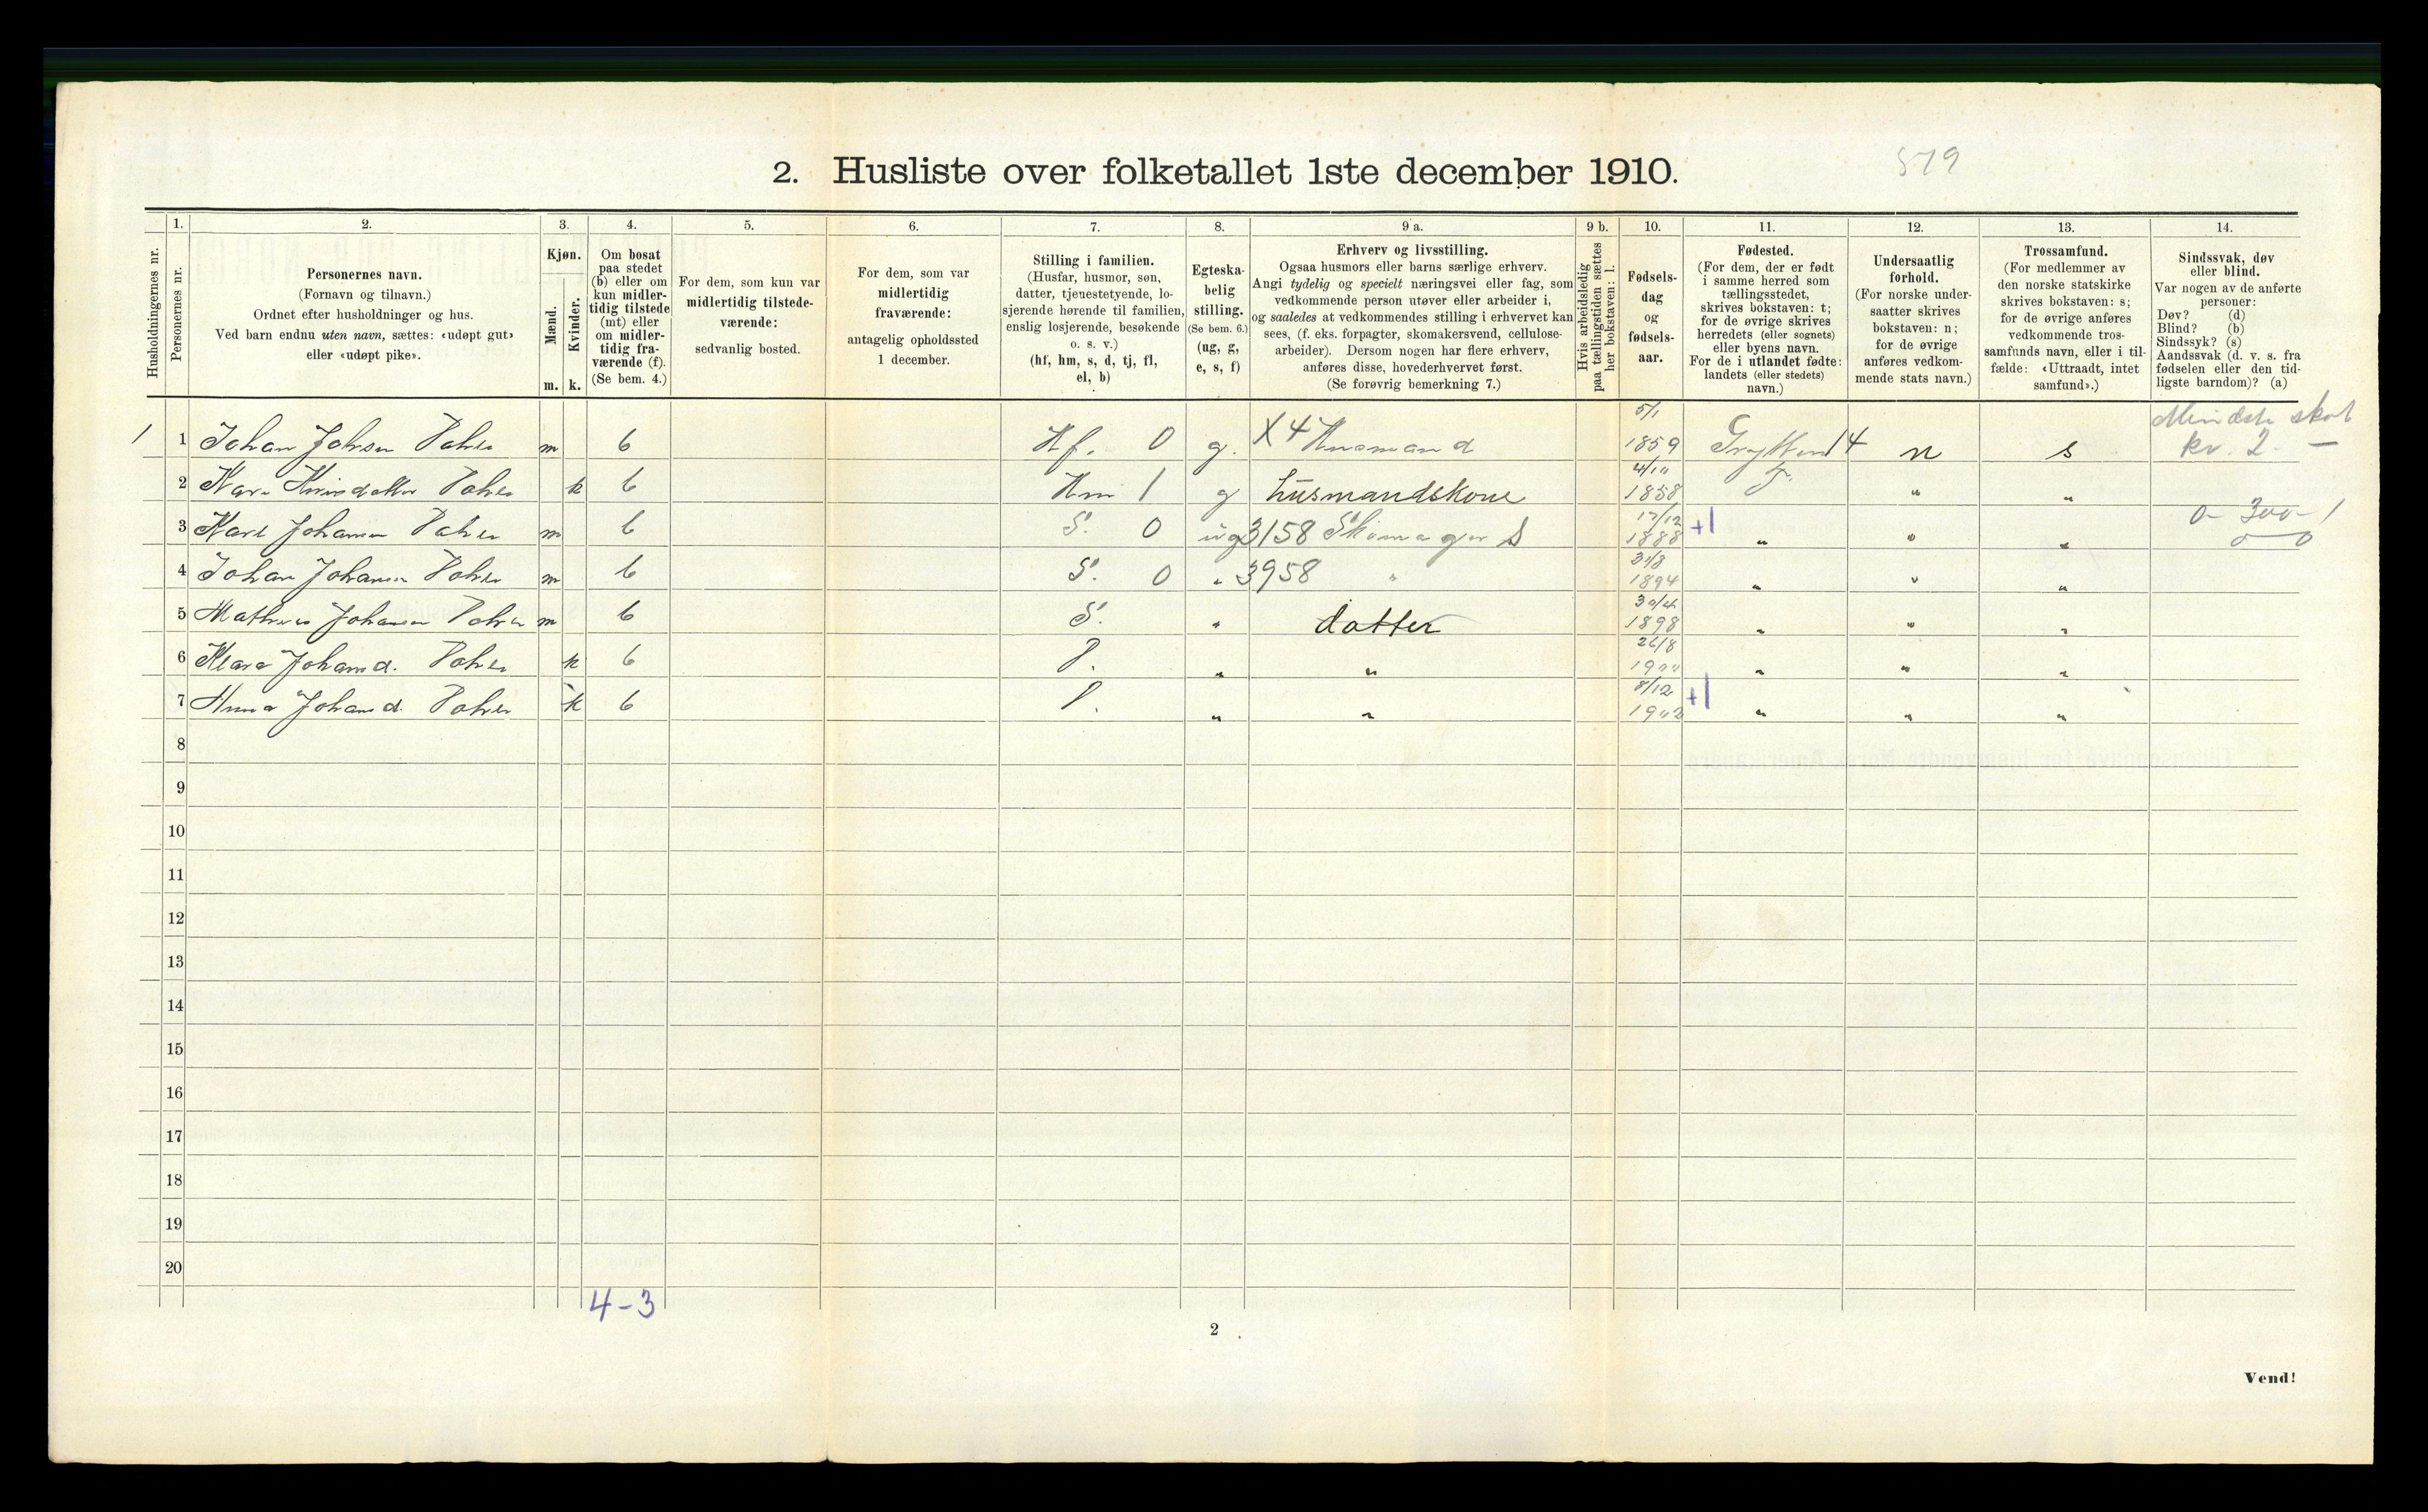 2. Husliste over folketallet 1ste december 1910.
579
Husholdningernes nr.
1.
Personernes nr.
2.
Personernes navn.
(Fornavn og tilnavn.)
Ordnet efter husholdninger og hus.
Ved barn endnu uten navn, sættes: «udøpt gut»
eller «udøpt pike».
3.
Kjøn.
Mænd.
Kvinder.
m. k.
4.
Om bosat
paa stedet
(b) eller om
kun midler-
tidig tilstede
(mt) eller
om midler-
tidig fra-
værende (f).
(Se bem. 4.)
5.
For dem, som kun var
midlertidig tilstede-
værende:
sedvanlig bosted.
6.
For dem, som var
midlertidig
fraværende:
antagelig opholdssted
1 december.
7.
Stilling i familien.
(Husfar, husmor, søn,
datter, tjenestetyende, lo-
sjerende hørende til familien,
enslig losjerende, besøkende
o. s. v.)
(hf, hm, s, d, tj, fl,
el, b)
8.
Egteska-
belig
stilling.
(Se bem. 6.)
(ug, g,
e, s, f)
9 a.
Erhverv og livsstilling.
Ogsaa husmors eller barns særlige erhverv.
Angi tydelig og specielt næringsvei eller fag, som
vedkommende person utøver eller arbeider i,
og saaledes at vedkommendes stilling i erhvervet kan
sees, (f. eks. forpagter, skomakersvend, cellulose-
arbeider). Dersom nogen har flere erhverv,
anføres disse, hovederhvervet først.
(Se forøvrig bemerkning 7.)
9 b.
Hvis arbeidsledig
paa tællingstiden sættes
her bokstaven: l.
10.
Fødsels-
dag
og
fødsels-
aar.
11.
Fødested.
(For dem, der er født
i samme herred som
tællingsstedet,
skrives bokstaven: t;
for de øvrige skrives
herredets (eller sognets)
eller byens navn.
For de i utlandet fødte:
landets (eller stedets)
navn.)
12.
Undersaatlig
forhold.
(For norske under-
saatter skrives
bokstaven: n;
for de øvrige
anføres vedkom-
mende stats navn.)
13.
Trossamfund.
(For medlemmer av
den norske statskirke
skrives bokstaven: s;
for de øvrige anføres
vedkommende tros-
samfunds navn, eller i til-
fælde: «Uttraadt, intet
samfund».)
14.
Sindssvak, døv
eller blind.
Var nogen av de anførte
personer:
Døv? (d)
Blind? (b)
Sindssyk? (s)
Aandssvak (d. v. s. fra
fødselen eller den tid-
ligste barndom)? (a)
Mindste skat
kv. 2. —
0 - 300 - 1
0 0
1 1 Johan Johsen m b Hf. 0 g. X 4 Husmand 5/1 1859 Grytten 14 n s
2 Kari k b Hm 1 g husmandskone 4/10 1858 " "
3 Karl Johansen m b S. 0 ug 3158 Skomager S 17/12 1888 +1 " " "
4 Johan Johansen m b S. 0 " 3958 " 31/3 1894 " " "
5 Mathias Johansen m b S. " 30/4 1898 " " "
datter
6 Klara Johansd. k b D. " " 26/8 1900 " " "
7 Anna Johansd. k b D. " " 8/12 1902 +1 " " "
8
9
10
11
12
13
14
15
16
17
18
19
20
4-3
2
Vend!